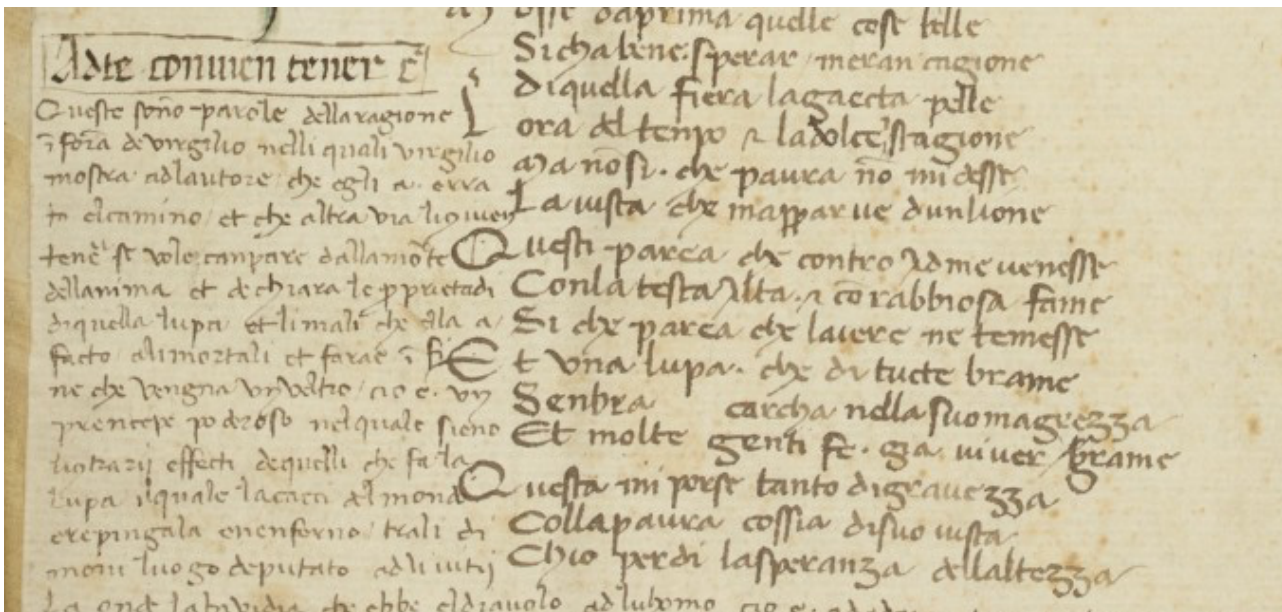 Adte conuien tener c̄
Queste sono parole dellaragione
ī forā de virgilio nelli quali virgilio
mostra adlautore che egli a. erra
to elcamino et che altra via
tenē se vole canpare dallamōte
dellanima et dechiara le pprietadi
diquella lupa et li mali che ella a
facto alimortali et farae ī fi
ne che vengna vn veltro cio e. vn
prencepe poderoso nelquale sieno
effecti dequelli che fa la
lupa ilquale lacacci delmondo
erepingala enenforno trali di
moni luogo deputato adli vitij
che ebbe eldiauolo
osse daprima quelle cose belle
Sicha bene sperar meran cagione
Diquella fiera lagaecta pelle
Lora del tenpo ⁊ ladolce stagione
Ma nōsi. che paura nō mi desse
La uista che mapparue dunlione
Questi parea che contro adme uenesse
Conla testa alta. ⁊ cō rabbiosa fame
Si che parea che laiere ne temesse
Et vna lupa. che di tucte brame
Senbra carcha nella suo magrezza
Et molte genti fe. gia uiuer grame
Questa mi porse tanto digrauezza
Collapaura cossia disuo uista
Chio perdi lasperanza dellaltezza